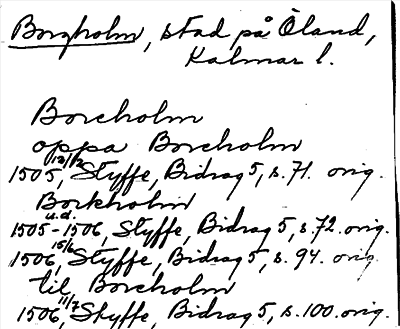 Borgholm, stad på Öland,
Kalmar l.
Borcholm
oppa Borcholm
1505 12/12, Styffe, Bidrag 5, s. 71. orig.
Borkholm
1505 u.d. - 1506, Styffe, Bidrag 5, s. 72. orig.
1506 15/6, Styffe, Bidrag 5, s. 94. orig.
til Borcholm
1506 11/7, Styffe, Bidrag 5, s. 100. orig.